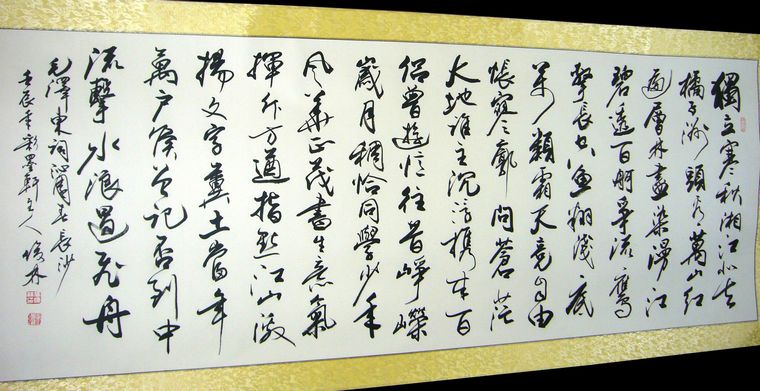 獨立寒秋湘江北去
橘子洲頭看萬山紅
遍層林盡染漫江
碧透百舸爭流鷹
擊長空魚翔淺底
萬類霜天競自由
悵寥廓問蒼茫
大地誰主沉浮携來百
侶曾遊憶往昔崢嶸
歲月稠恰同學少年
風華正茂書生意氣
揮斥方遒指點江山激
揚文字糞土當年
萬戶侯曾記否到中
流擊水浪遏飛舟
毛澤東詞沁園春長沙
壬辰年彩墨軒主人